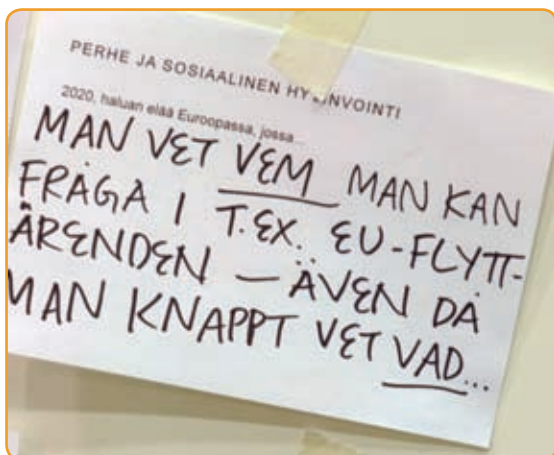 PERHE JA SOSIAALINEN HYVINVOINTI
2020, haluan elää Euroopassa, jossa...
MAN VET VEM MAN KAN
FRÅGA I T.EX. EU-FLYTT-
ÄRENDEN — ÄVEN DÅ
MAN KNAPPT VET VAD...